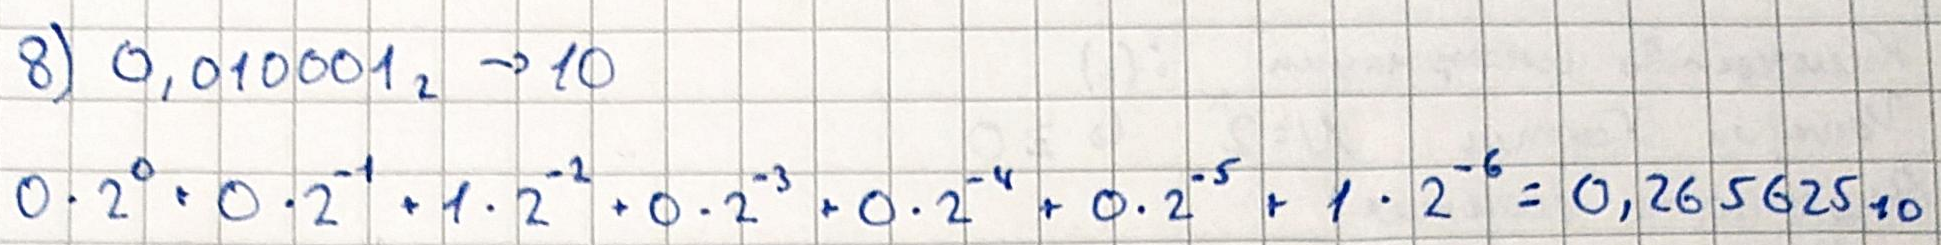 8) 0,010001₂ → 10
0·2⁰ + 0·2⁻¹ + 1·2⁻² + 0·2⁻³ + 0·2⁻⁴ + 0·2⁻⁵ + 1·2⁻⁶ = 0,265625₁₀